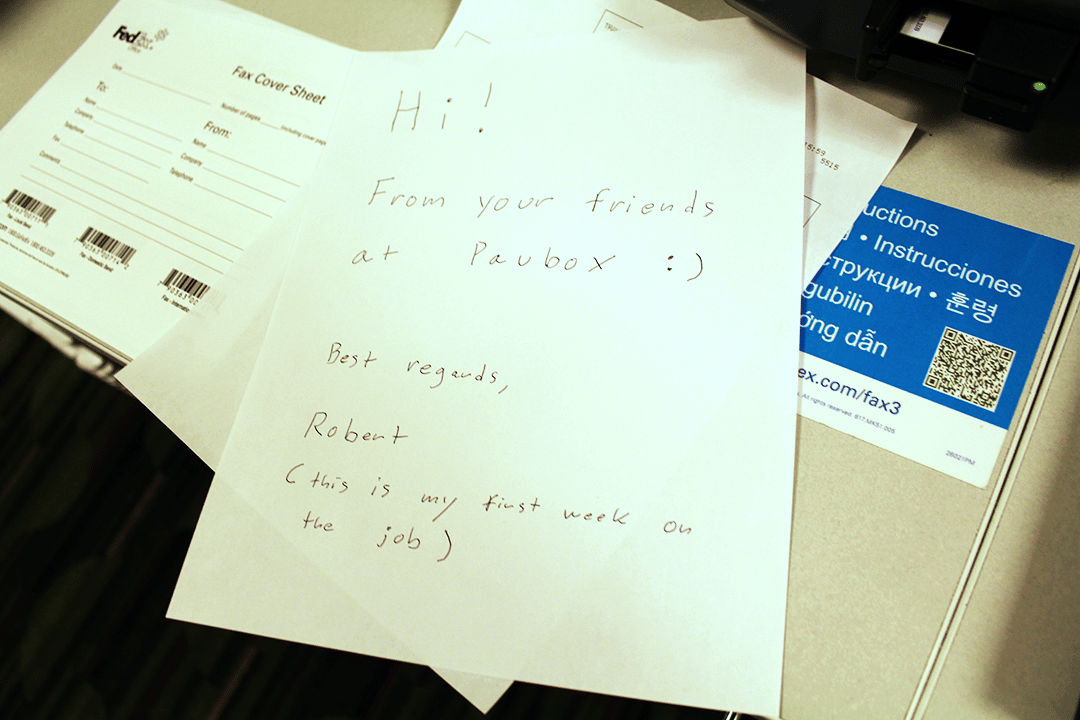 FedEx Office
Fax Cover Sheet
Date
Number of pages (including cover page
To:
Name
Company
Telephone
Fax
Comments
From:
Name
Company
Telephone
Hi!
From your friends
at Paubox :)
Best regards,
Robert
(this is my first week on
the job)
15:59
5515
uctions
• Instrucciones
струкции • 훈령
gubilin
ớng dẫn
ex.com/fax3
All rights reserved.